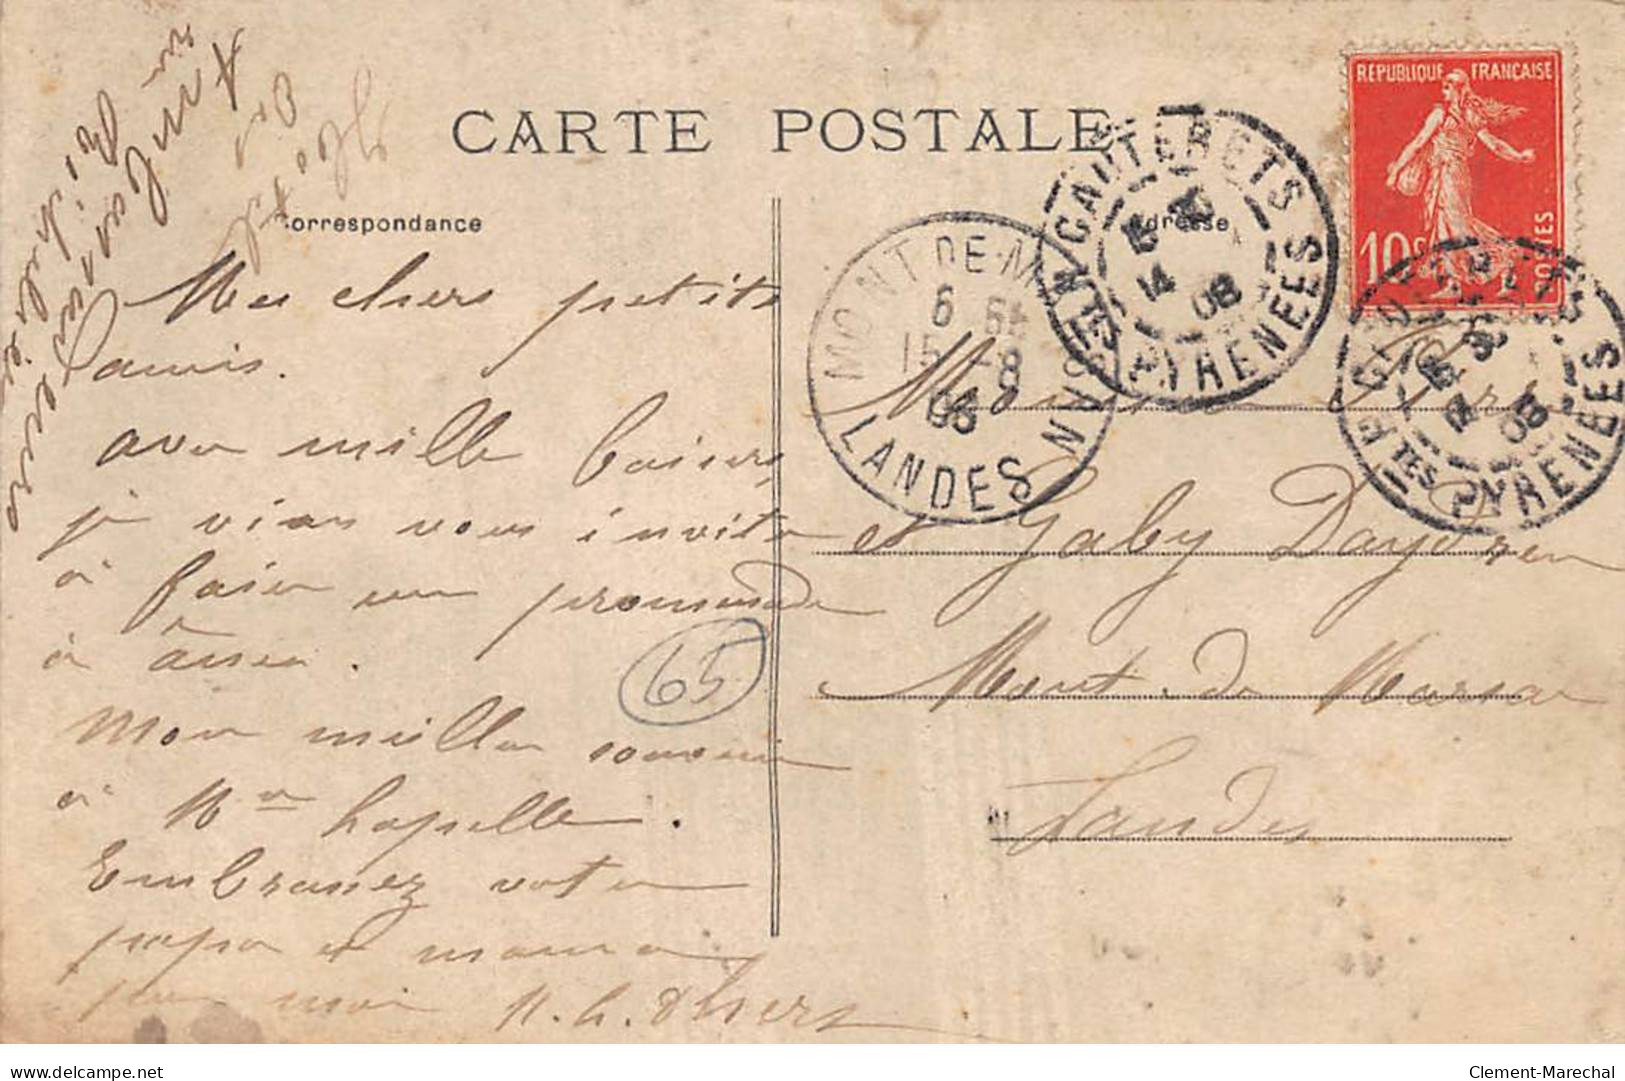 CARTE POSTALE
Correspondance
Adresse
RÉPUBLIQUE FRANÇAISE
10c POSTES
CAUTERETS
14 08
Htes PYRENEES
MONT-DE-MARSAN
6
15-8
08
LANDES
CAUTERETS
08
Htes PYRENEES
Mes chers petits
amis.
avec mille baisers
je viens vous inviter
à faire une promenade
à ânes.
Mon meilleur souvenir
à Mme Lapelle.
Embrassez votre
papa et maman
pour moi
65
et Gaby
Mont de Marsan
Landes
delcampe.net
Clement-Marechal